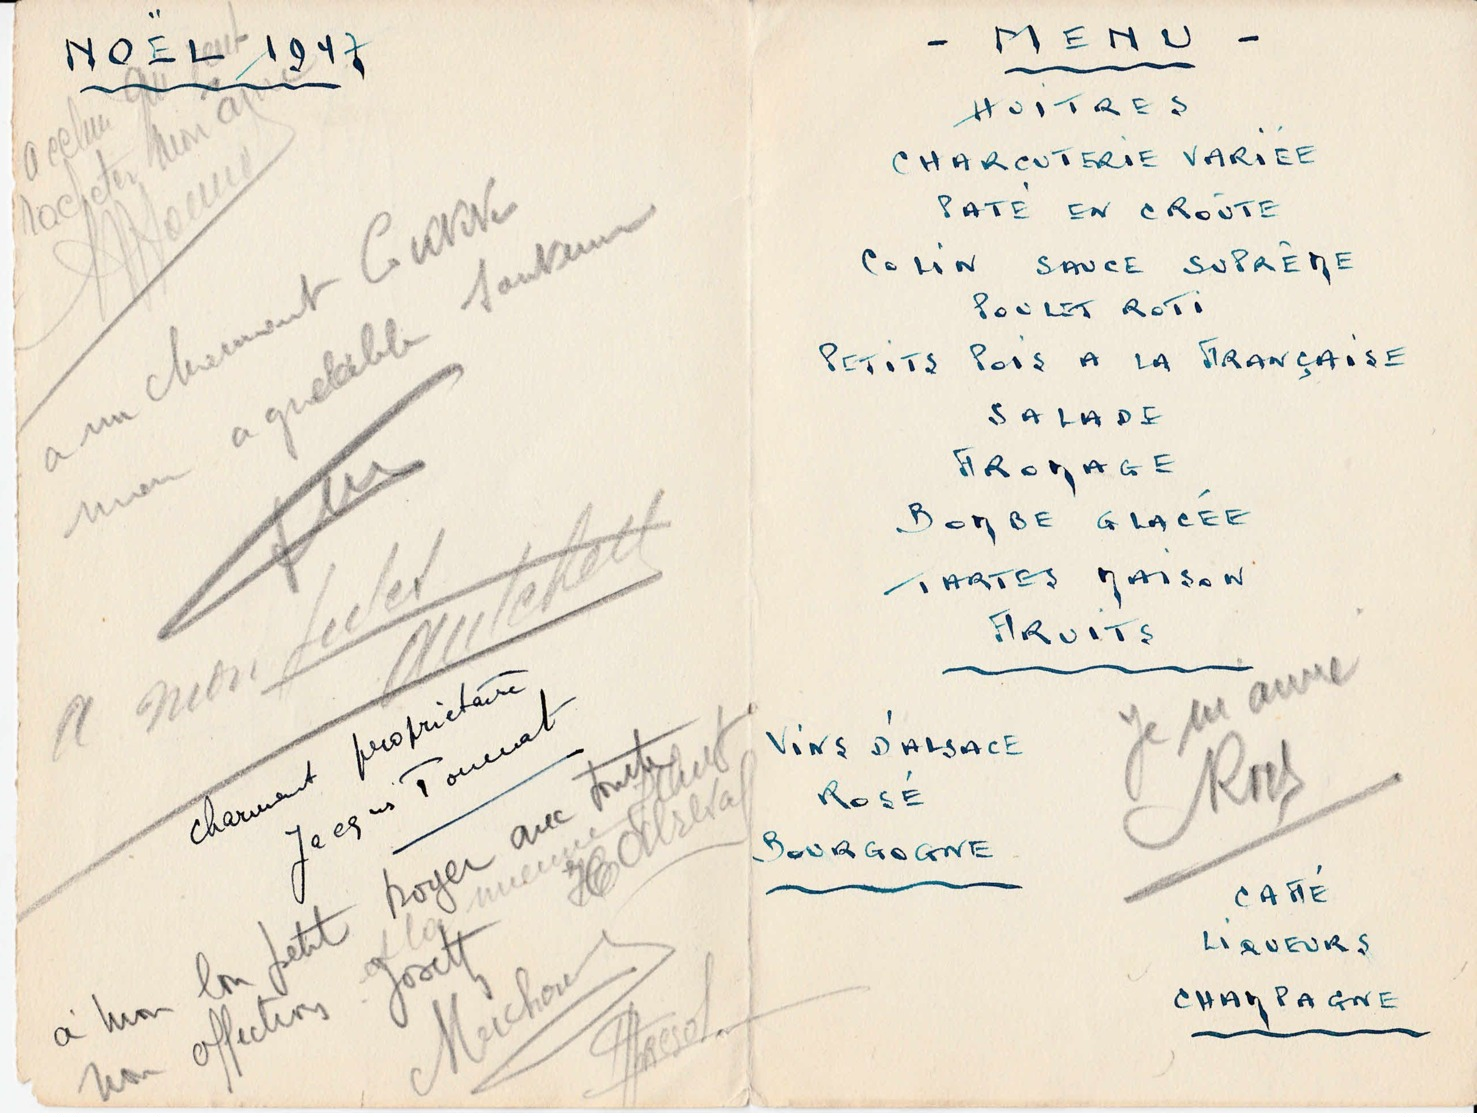 NOËL 1947
a celui qui veut
racheter mon âme
a un charmant
mon agréable Souvenir
a mon
charmant propriétaire
Jacques
à mon bon petit Royer avec toute
mon affections Josette
et la mienne
- MENU -
HUITRES
CHARCUTERIE VARIÉE
PATÉ EN CROÛTE
COLIN SAUCE SUPRÊME
POULET ROTI
PETITS POIS A LA FRANÇAISE
SALADE
FROMAGE
BOMBE GLACÉE
TARTES MAISON
FRUITS
VINS D'ALSACE
ROSÉ
BOURGOGNE
Je
CAFÉ
LIQUEURS
CHAMPAGNE